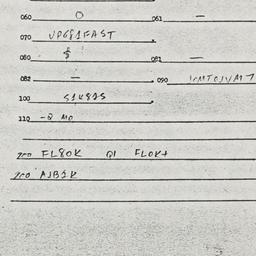 060 0 051 —
070 UP681FAST
080 $ 081 —
082 — 090
100 S1K81S
110 -2 MO
200 FL80K Q1 FLOK+
200 AJB1K